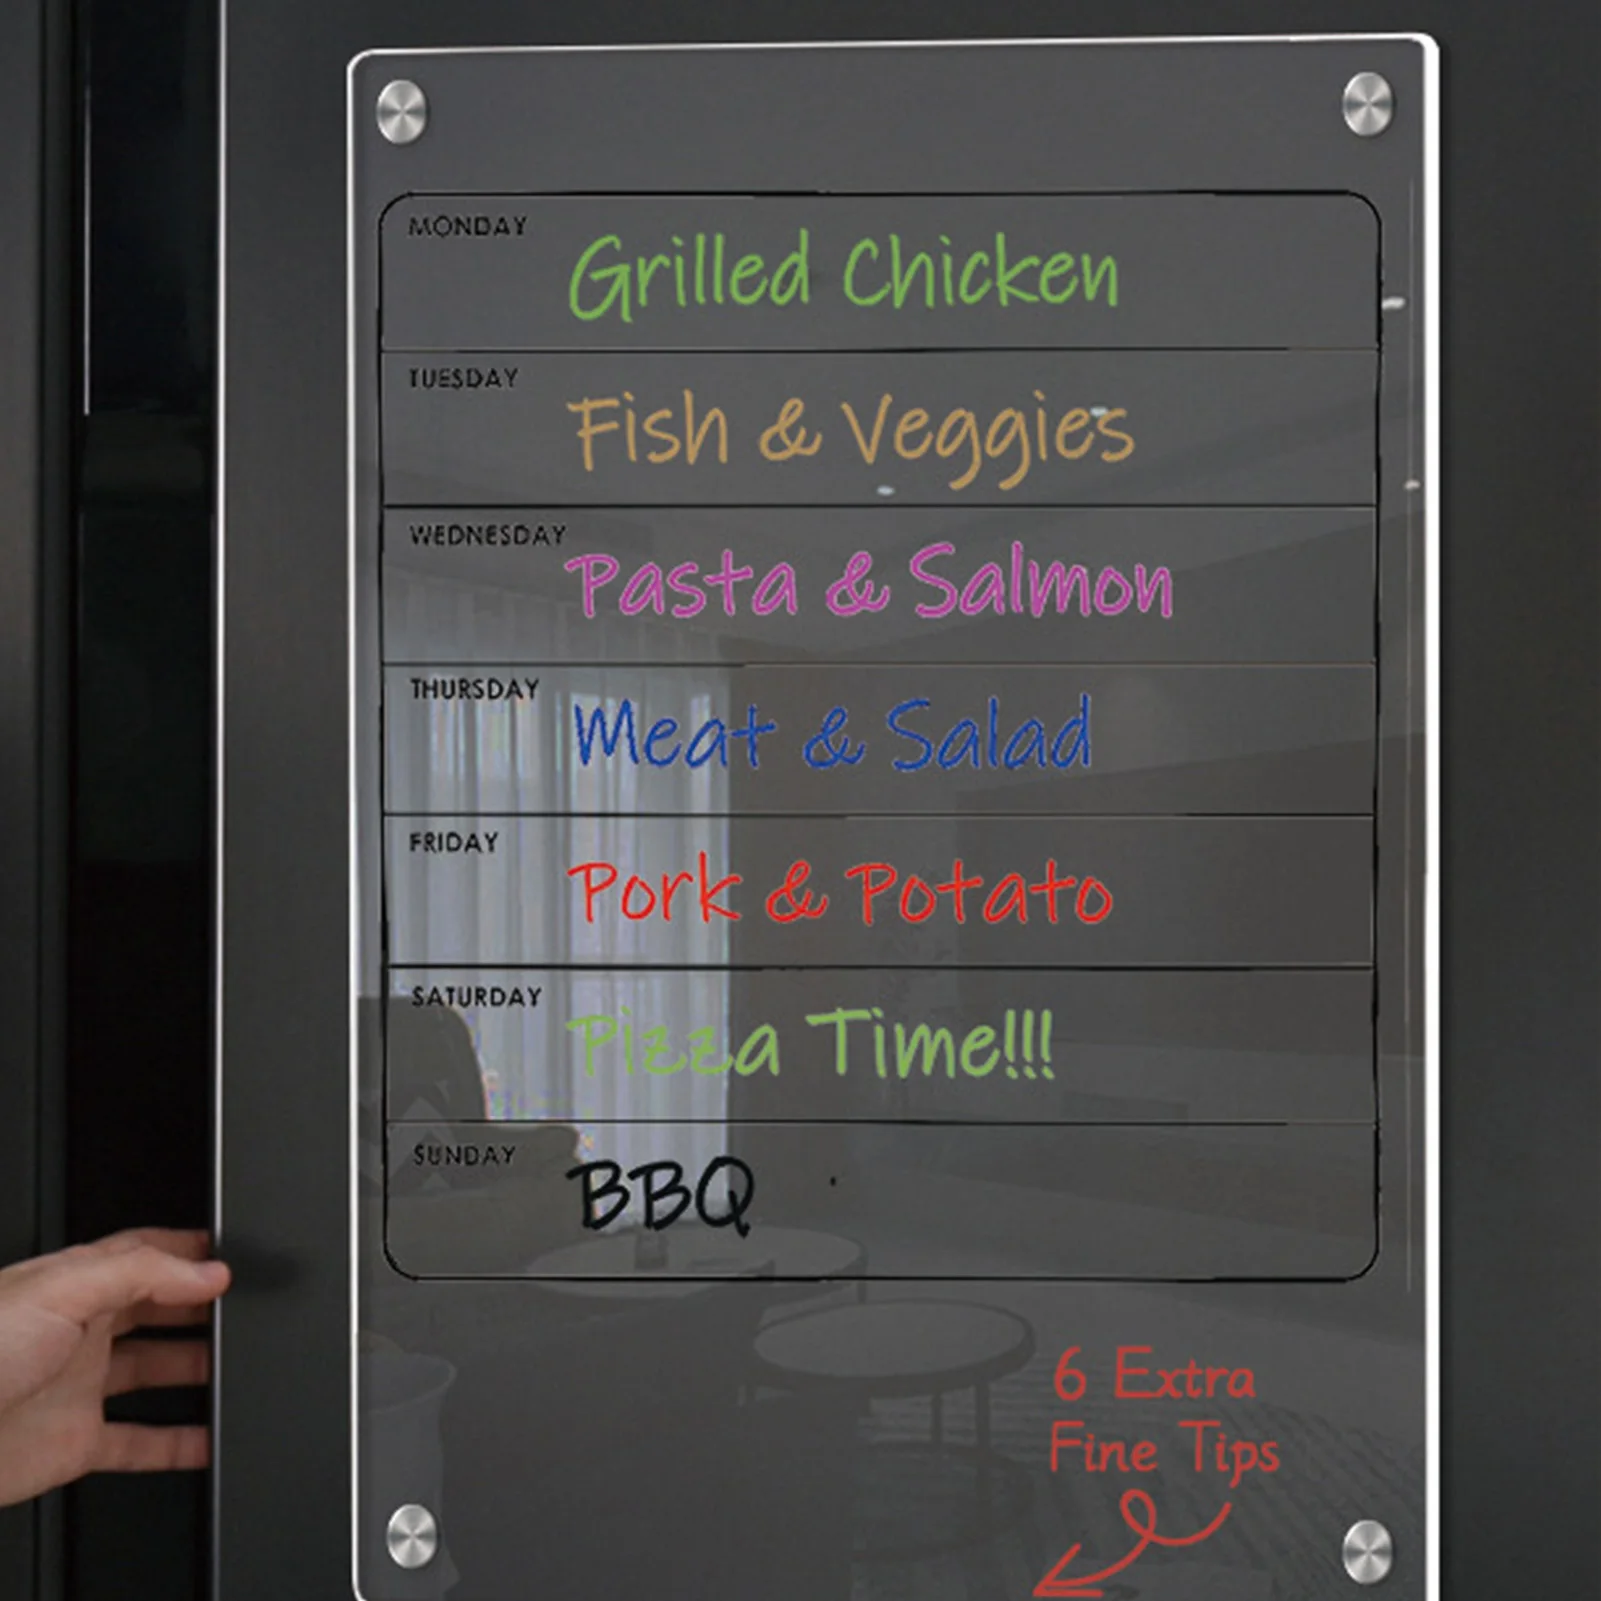 MONDAY
Grilled Chicken
TUESDAY
Fish & Veggies
WEDNESDAY
Pasta & Salmon
THURSDAY
Meat & Salad
FRIDAY
Pork & Potato
SATURDAY
Pizza Time!!!
SUNDAY
BBQ
6 Extra
Fine Tips